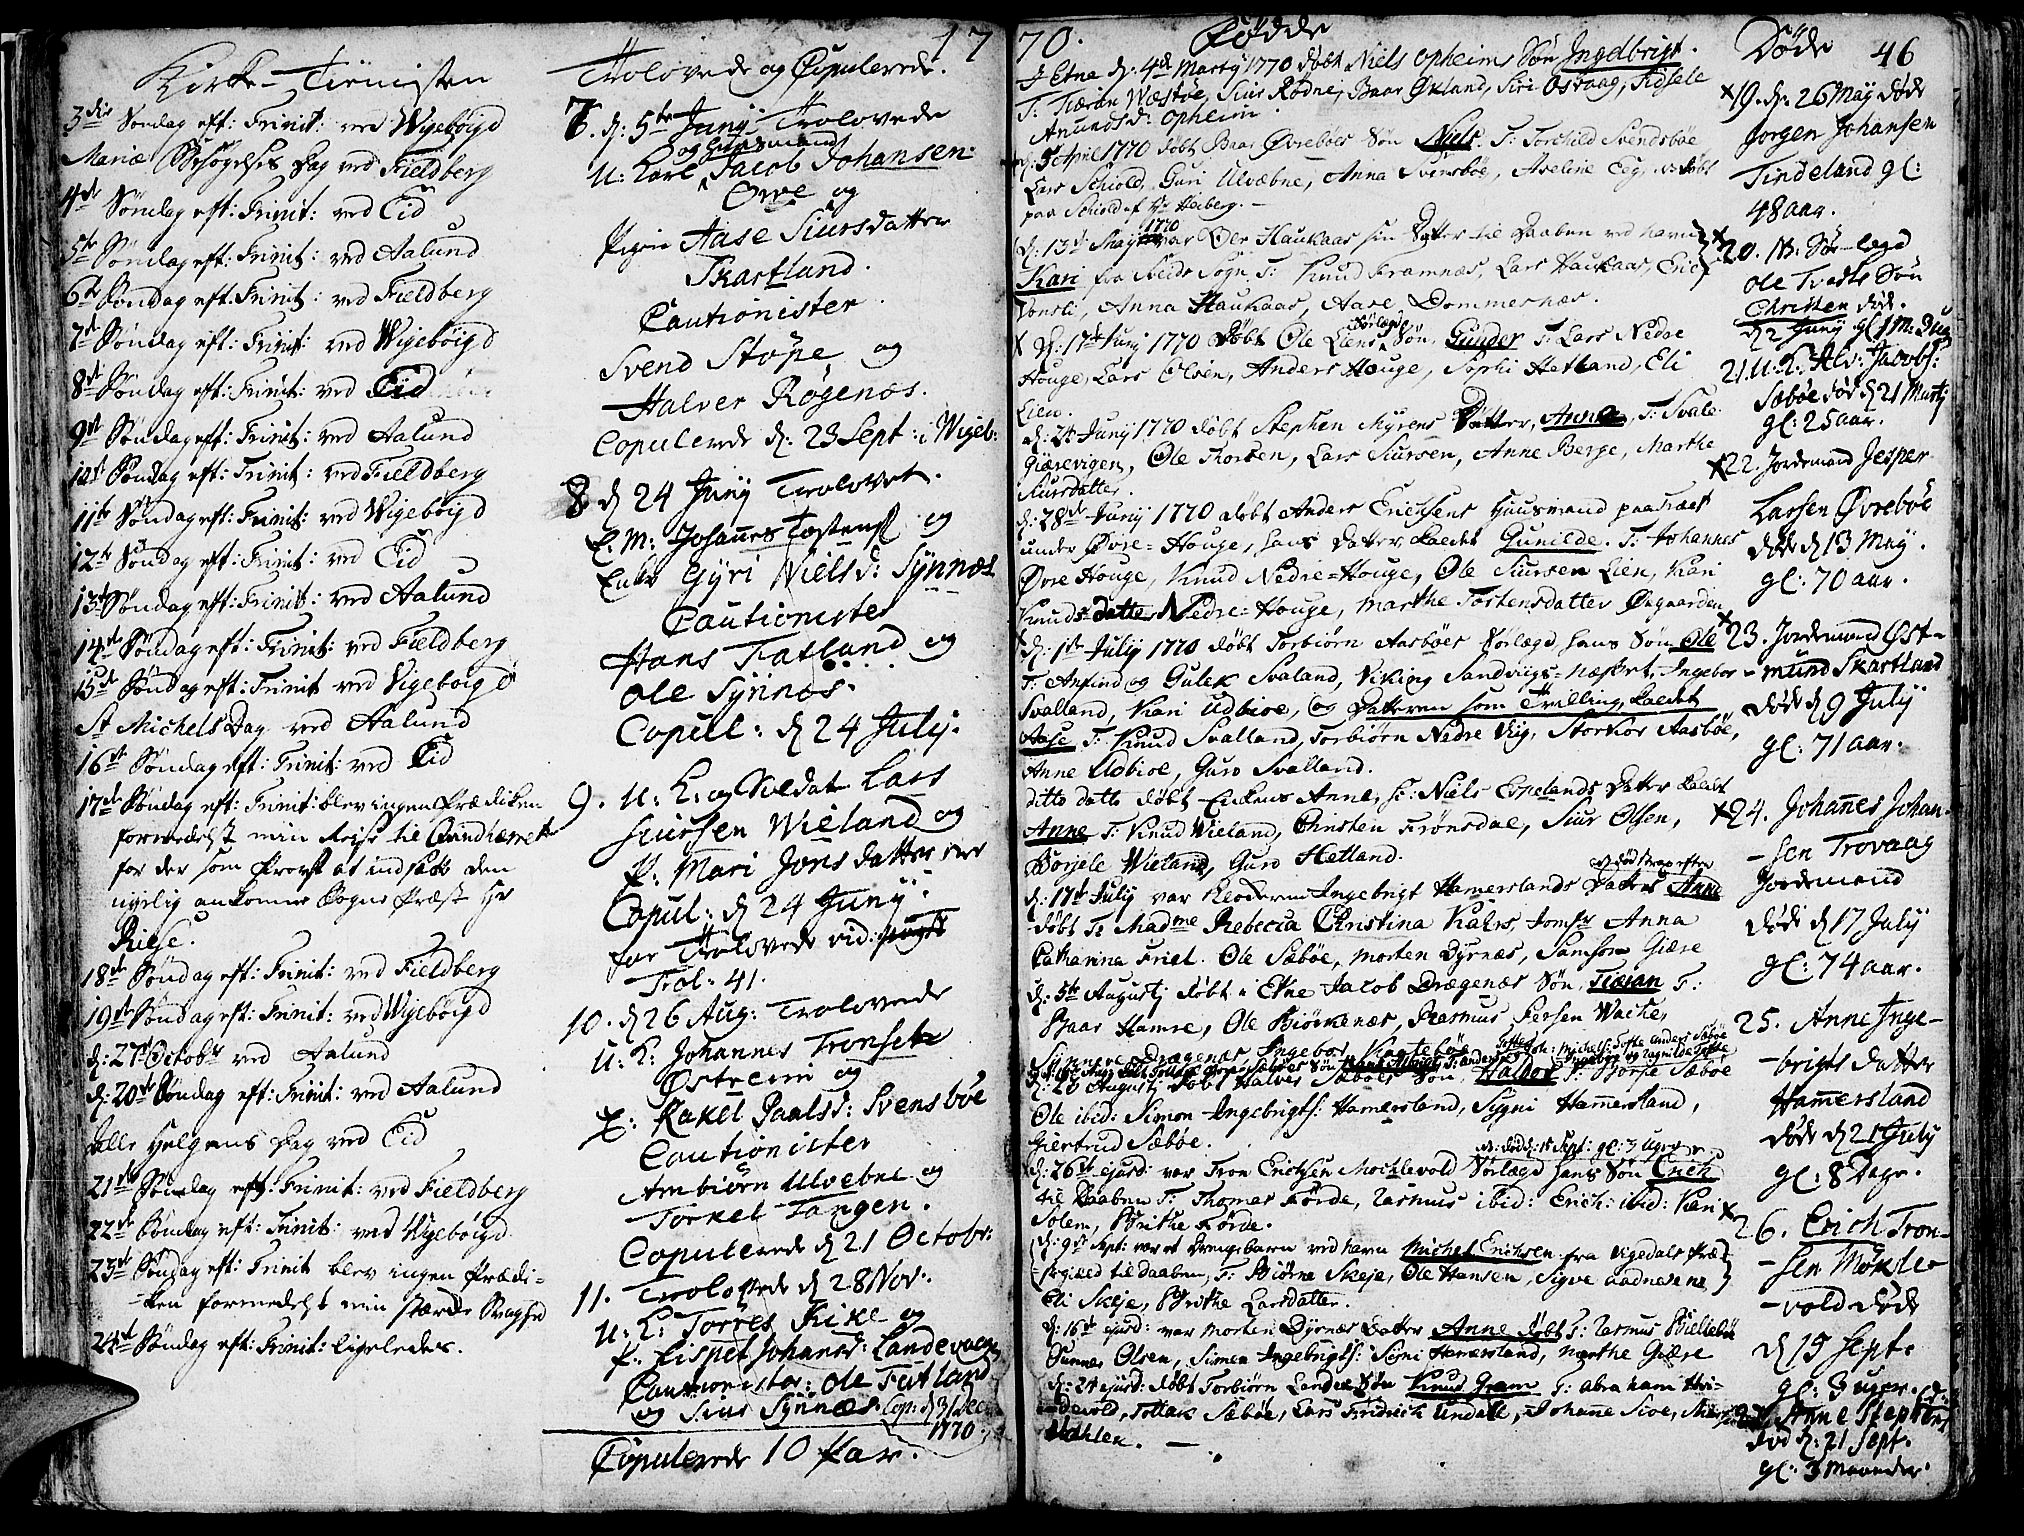 17
Kirke-Tienisten
3die Søndag eft: Trinit: ved Wigebøigd
Mariæ Besøgelses Dag ved Fieldberg
4de Søndag eft: Trinit: ved Eid
5te Søndag eft: Trinit: ved Aalund
6te Søndag eft: Trinit: ved Fieldberg
7de Søndag eft: Trinit: ved Wigebøigd
8de Søndag eft: Trinit: ved Eid
9de Søndag eft: Trinit: ved Aalund
10de Søndag eft: Trinit: ved Fieldberg
11te Søndag eft: Trinit: ved Wigebøigd
12te Søndag eft: Trinit: ved Eid
13de Søndag eft: Trinit: ved Aalund
14de Søndag eft: Trinit: ved Fieldberg
15de Søndag eft: Trinit ved Vigebøigd
St Michels Dag ved Aalund
16de Søndag eft: Trinit: ved Eid
17de Søndag eft: Trinit: blev ingen Prædiken
formedelst min Reise til
for der som Provst at indsætte den
nyelig ankomne Sogne Præst Hr
Riese.
18de Søndag eft: Trinit: ved Fieldberg
19de Søndag eft: Trinit: ved Wigebøigd
d: 27de Octobr ved Aalund
d: 20de Søndag eft: Trinit: ved Aalund
Alle Helgens Dag ved Eid
21de Søndag eft: Trinit: ved Fieldberg
22de Søndag eft: Trinit: ved Wigebøigd
23de Søndag eft: Trinit blev ingen Prædi-
ken formedelst min stærke Svaghed
24de Søndag eft: Trinit: ligeledes.
Trolovede og Copulerede.
7. d: 5te Junij Trolovede
og Huusmand
U: Karl Jacob Johansen
Øvre og
Pigen Aase Siursdatter
Skartland.
Cautionister
Svend Støpe og
Halver Røgenæs.
Copulerede d: 23 Sept: i Wigeb:
8 d 24 Junij Trolovet.
E. M: Johannes Tostens og
Enke Gyri Niels d: Synnæs
Cautionister
Hans Fatland og
Ole Synnæs.
Copul: d 24 July.
9. U: K: og Soldat Lars
Siursen Wieland og
P: Mari Jonsdatter
Copul: d 24 Junij:
for Trolovede vid:
Trol: 41.
10. d 26 Aug: Trolovede
U: K: Johannes Tronsen
Østreim og
P: Rakel Paalsd: Svensbøe
Cautionister
Ambiørn Ulvebne og
Torkel Tangen.
Copulerede d 21 Octobr:
11. Trolovede d 28 Nov:
U: K: Torres Rike og
P. Lispet Johansd: Landevaag
Cautionister: Ole Fatland
og Siur Synnæs. Cop: d 31 Dec
1770.
Copulerede 10 Par.
70.
Fødde
I Etne d: 4de Martij 1770 døbt Niels Opheims Søn Ingebrigt.
T: Tieran Wæstøe, Siur Rødne, Baar Økland, Siri Osvaag, Sidsele
Amundsd: Opheim
d: 5 April 1770 døbt Baar Øvrebøes Søn Niels. T: Torchild Svendsbøe
Lars Schiold, Guri Ulvæbne, Anna Svensbøe, Aseline Eeg,
paa Schiold af Hr Heiberg.
d: 13de Maij 1770 var Ole Haukaas sin Datter til Daaben ved Navn
Kari fra Neds Sogn T: Knud Framnæs, Lars Haukaas, Eric
Vonsli, Anna Haukaas, Aase Dommersnæs.
d: 17de Junij 1770 døbt Ole Liens Sørlægd Søn, Gunder T: Lars Nedre
Houge, Lars Olsen, Anders Houge, Sophi Hetland, Eli
Lien.
d: 24 Junij 1770 døbt Stephen Myrens Datter, Anna, T: Svale
Giærevigen, Ole Thorsen, Lars Siursen, Anne Berge, Marthe
Siursdatter.
d: 28de Junij 1770 døbt Anders Ericksens Huusmand paa
under Øvre-Houge, hans Datter kaldt Gunilde. T: Johannes
Øvre Houge, Knud Nedre-Houge, Ole Siursen Lien, Kari
Knuds datter Nedre-Houge, Marthe Tostensdatter Øygaarden
d: 1ste July 1770 døbt Torbiørn Aasbøes Sørlægd hans Søn Ole
T: Anfind og Gulek Svaland, Viking Sandvigs-Næsset, Ingebor
Svalland, Kari Udbioe, og Datteren som Tvilling kaldet
Aase T: Knud Svalland, Torbiørn Nedre Vig, Storkor Aasbøe,
Anne Udbioe, Guro Svalland.
ditto dato døbt Enkens Anne, sl: Niels Espelands Datter kaldt
Anne T: Knud Wieland, Christen Frønsdal, Siur Olsen,
Borgele Wieland, Guro Hetland.
død strax efter
d: 17de July var Klockeren Ingebrigt Hamerslands Datter Anne
døbt T: Madme Rebecia Christina Kahrs, Jomfr Anna
Catharina Friel. Ole Sæbøe, Morten Dyrnæs, Samson Giære
d: 5te Augustj døbt i Etne Jacob Drægenæs Søn, Tieran T:
Baar Hamre, Ole Biørkenæs, Rasmus Persen Wacke,
Synneve Drægenæs Ingebor
d: 26 Augustj døbt Halver Sæbøes Søn Halvor T: Borge Sæbøe
Ole ibid: Simon Ingebrigts: Hamersland, Sygni Hammersland,
Giertrud Sæbøe.
N: død d: 15 Sept: gl: 3 Uger
d: 26de ejusd: var Tron Ericksen Mocklevold Sørlægd hans Søn Erich
til Daaben T: Thomas Førde, Rasmus ibid: Erich ibid: Kari
Solem, Brithe Førde.
d: 9de Sept: var et Drengebarn ved Navn Michel Erichsen fra Vigedals Præ-
stegield til Daaben, T: Biørne Skeje, Ole Hansen, Sigve Aadnesen
Eli Skeje, Brithe Larsdatter.
d: 16de ejusd: var Morten Dyrnæs Datter Anne døbt T: Rasmus Biellebøe
Gunnar Olsen, Simen Ingebrigts: Signi Hamersland, Marthe Giære
d: 24 ejusd: døbt Torbiørn Landes Søn Knud Gram T: Abraham Hvi-
devold, Tollak Sæbøe, Lars Fridrich Undall, Johanne Stoe,
Mæhlen.
Døde 46
19. d: 26 May døde
Jørgen Johansen
Tindeland gl:
48 aar.
20. N: Sør-lægd
Ole Tvedts Søn
Christen død.
22 Junij gl: 1 M:
21. U: K: Hlv: Jacobs:
Sæbøe død d 21 Martij
gl: 25 aar.
22. Jordemand Jesper
Larsen Øvrebøe
døde d 13 May.
gl: 70 aar.
23. Jordemand Øst-
mund Skartland
døde d 9 July
gl: 71 aar.
24. Johannes Johan-
sen Trovaag
Jordemand
døde d 17 July
gl: 74 aar.
25. Anne Inge-
brigts datter
Hammersland
døde d 21 July
gl: 8 Dage.
26. Erich Tron-
sen Møkle-
vold døde
d 15 Sept:
gl: 3 uger.
27. Anne Stephens
død d: 21 Sept.
gl: 3 Maaneder.